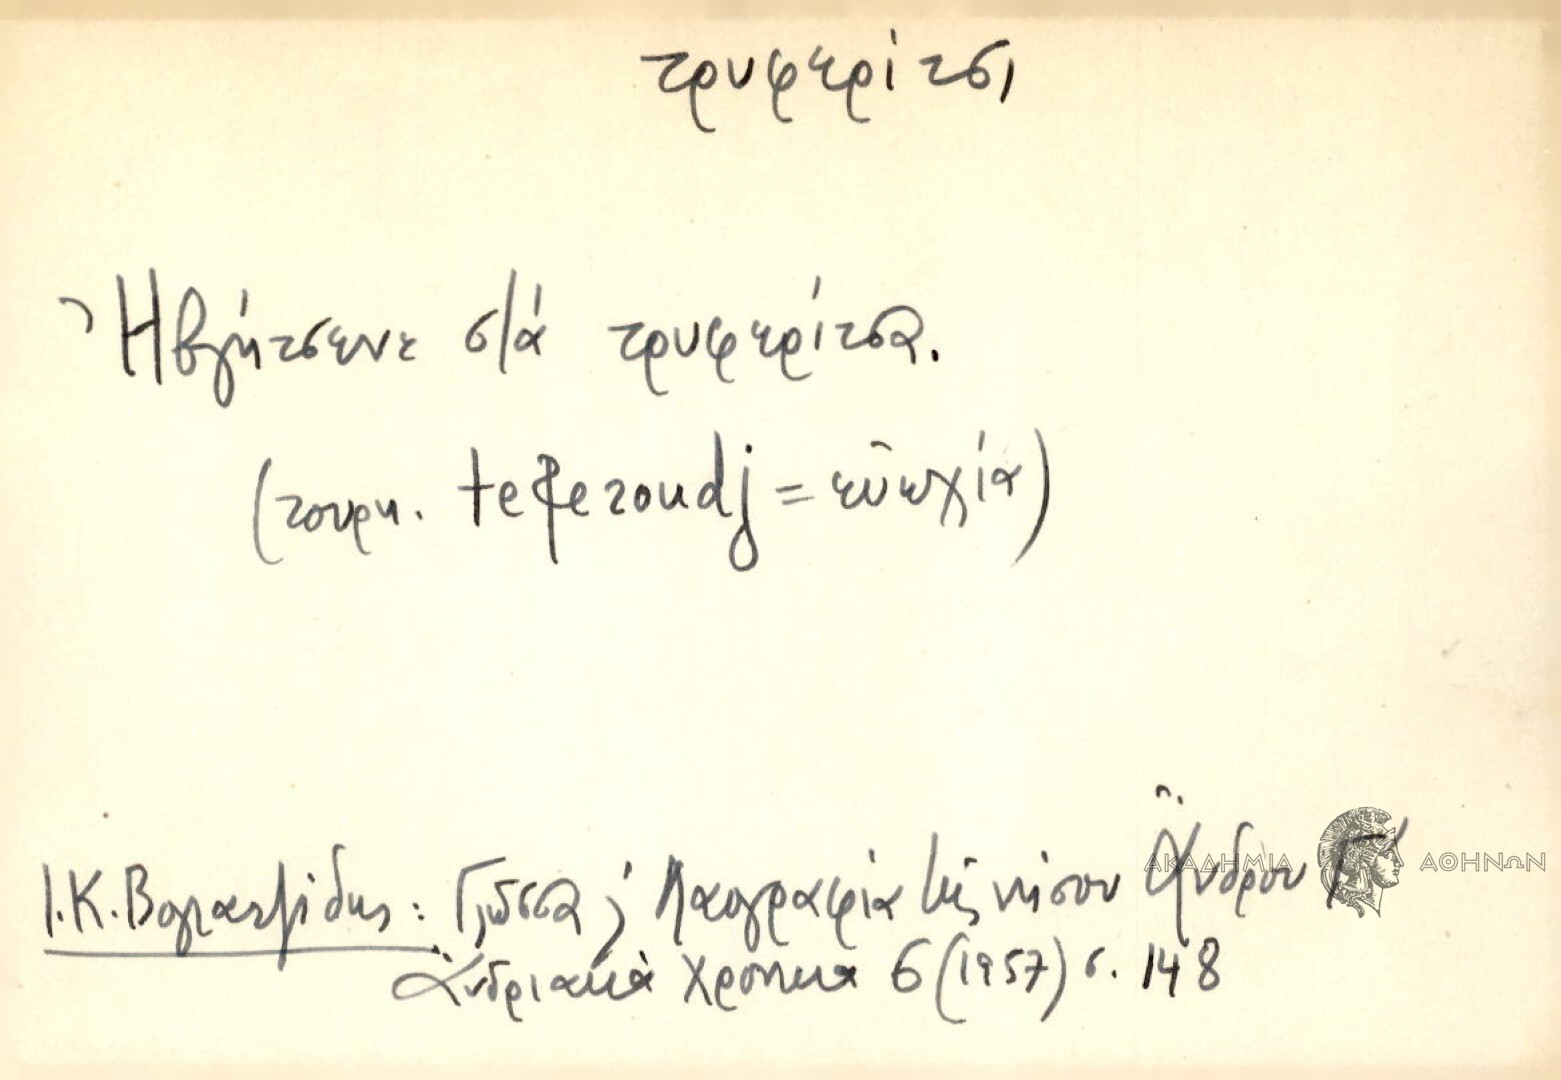 τρυφερίτσι
Ἠβγήτσενε σ'ά τρυφερίτσα.
(τουρκ. teφeroudj = εὐωχία)
Ι.Κ. Βογιατζίδης: Γλῶσσα κ' Λαογραφία τῆς νήσου Ἄνδρου Γ'
Ἀνδριακὰ Χρονικα 6 (1957) σ. 148
ΑΚΑΔΗΜΙΑ ΑΘΗΝΩΝ